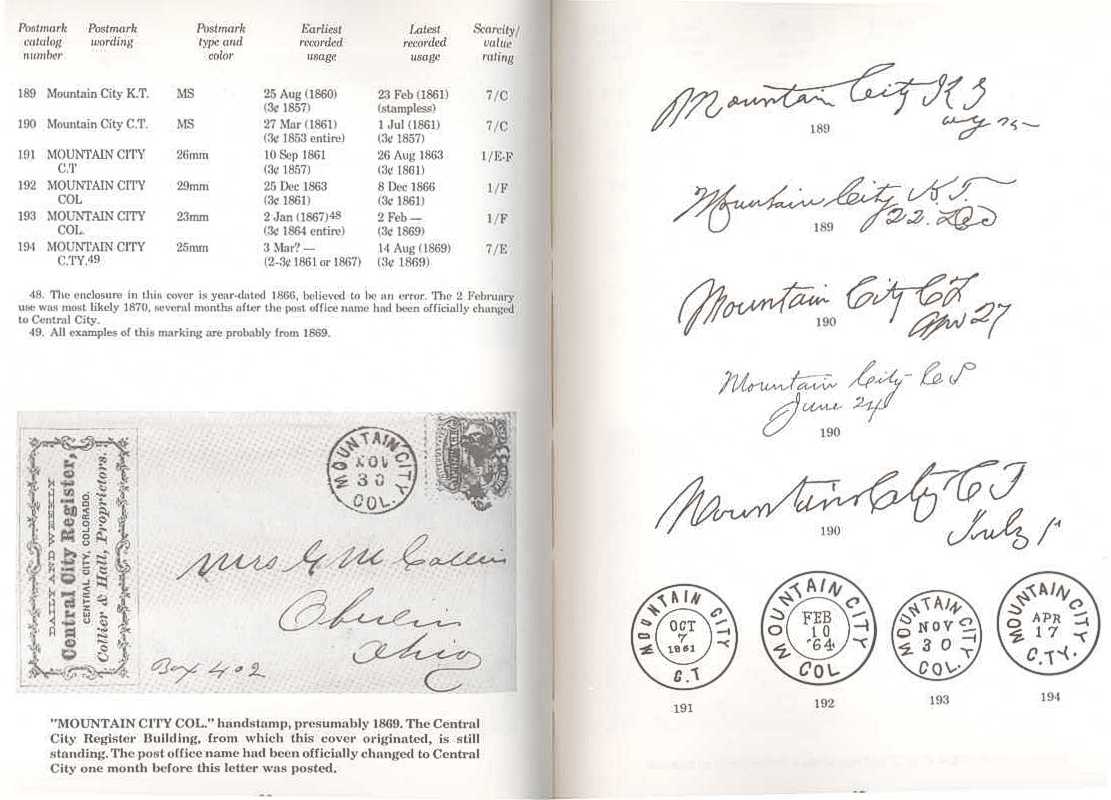 Postmark catalog number Postmark wording Postmark type and color Earliest recorded usage Latest recorded usage Scarcity/ value rating
189 Mountain City K.T. MS 25 Aug (1860) 23 Feb (1861) 7/C
(3¢ 1857) (stampless)
190 Mountain City C.T. MS 27 Mar (1861) 1 Jul (1861) 7/C
(3¢ 1853 entire) (3¢ 1857)
191 MOUNTAIN CITY 26mm 10 Sep 1861 26 Aug 1863 1/E-F
C.T (3¢ 1857) (3¢ 1861)
192 MOUNTAIN CITY 29mm 25 Dec 1863 8 Dec 1866 1/F
COL (3¢ 1861) (3¢ 1861)
193 MOUNTAIN CITY 23mm 2 Jan (1867)48 2 Feb — 1/F
COL. (3¢ 1864 entire) (3¢ 1869)
194 MOUNTAIN CITY 25mm 3 Mar? — 14 Aug (1869) 7/E
C.TY.49 (2-3¢ 1861 or 1867) (3¢ 1869)
48. The enclosure in this cover is year-dated 1866, believed to be an error. The 2 February
use was most likely 1870, several months after the post office name had been officially changed
to Central City.
49. All examples of this marking are probably from 1869.
DAILY AND WEEKLY
Central City Register,
CENTRAL CITY, COLORADO.
Collier & Hall, Proprietors.
MOUNTAIN CITY
NOV
30
COL.
Mrs G M Collin
Oberlin
Ohio
Box 402
"MOUNTAIN CITY COL." handstamp, presumably 1869. The Central
City Register Building, from which this cover originated, is still
standing. The post office name had been officially changed to Central
City one month before this letter was posted.
Mountain City K T
189
Mountain City K.T.
22. Dec
189
Mountain City C.T
Apr 27
190
Mountain City C T
June 24
190
Mountain City C T
July 1
190
MOUNTAIN CITY
OCT
7
1861
C.T
191
MOUNTAIN CITY
FEB
10
'64
COL
192
MOUNTAIN CITY
NOV
30
COL.
193
MOUNTAIN CITY
APR
17
C.TY.
194